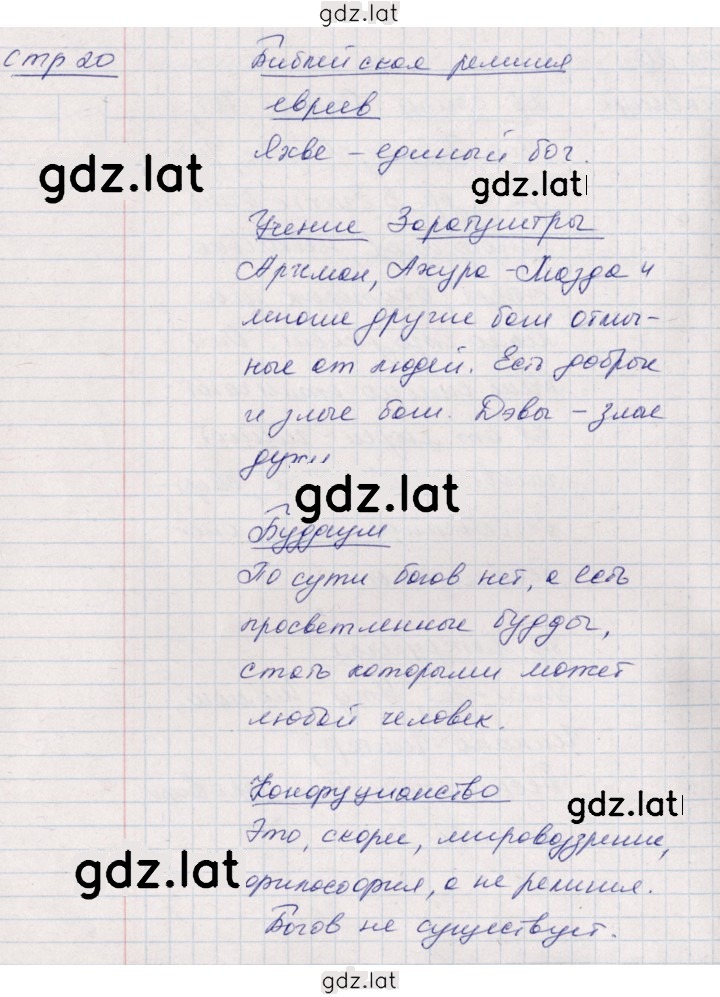 gdz.lat
стр 20
Библейская религия
евреев
Яхве – единый бог.
gdz.lat
gdz.lat
Учение Заратуштры
Ариман, Ахура-Мазда и
многие другие боги отлич-
ные от людей. Есть добрые
и злые боги. Дэвы – злые
духи
gdz.lat
Буддизм
По сути богов нет, а есть
просветленные будды,
стать которыми может
любой человек.
Конфуцианство
gdz.lat
Это, скорее, мировоззрение,
gdz.lat
философия, а не религия.
Богов не существует.
gdz.lat